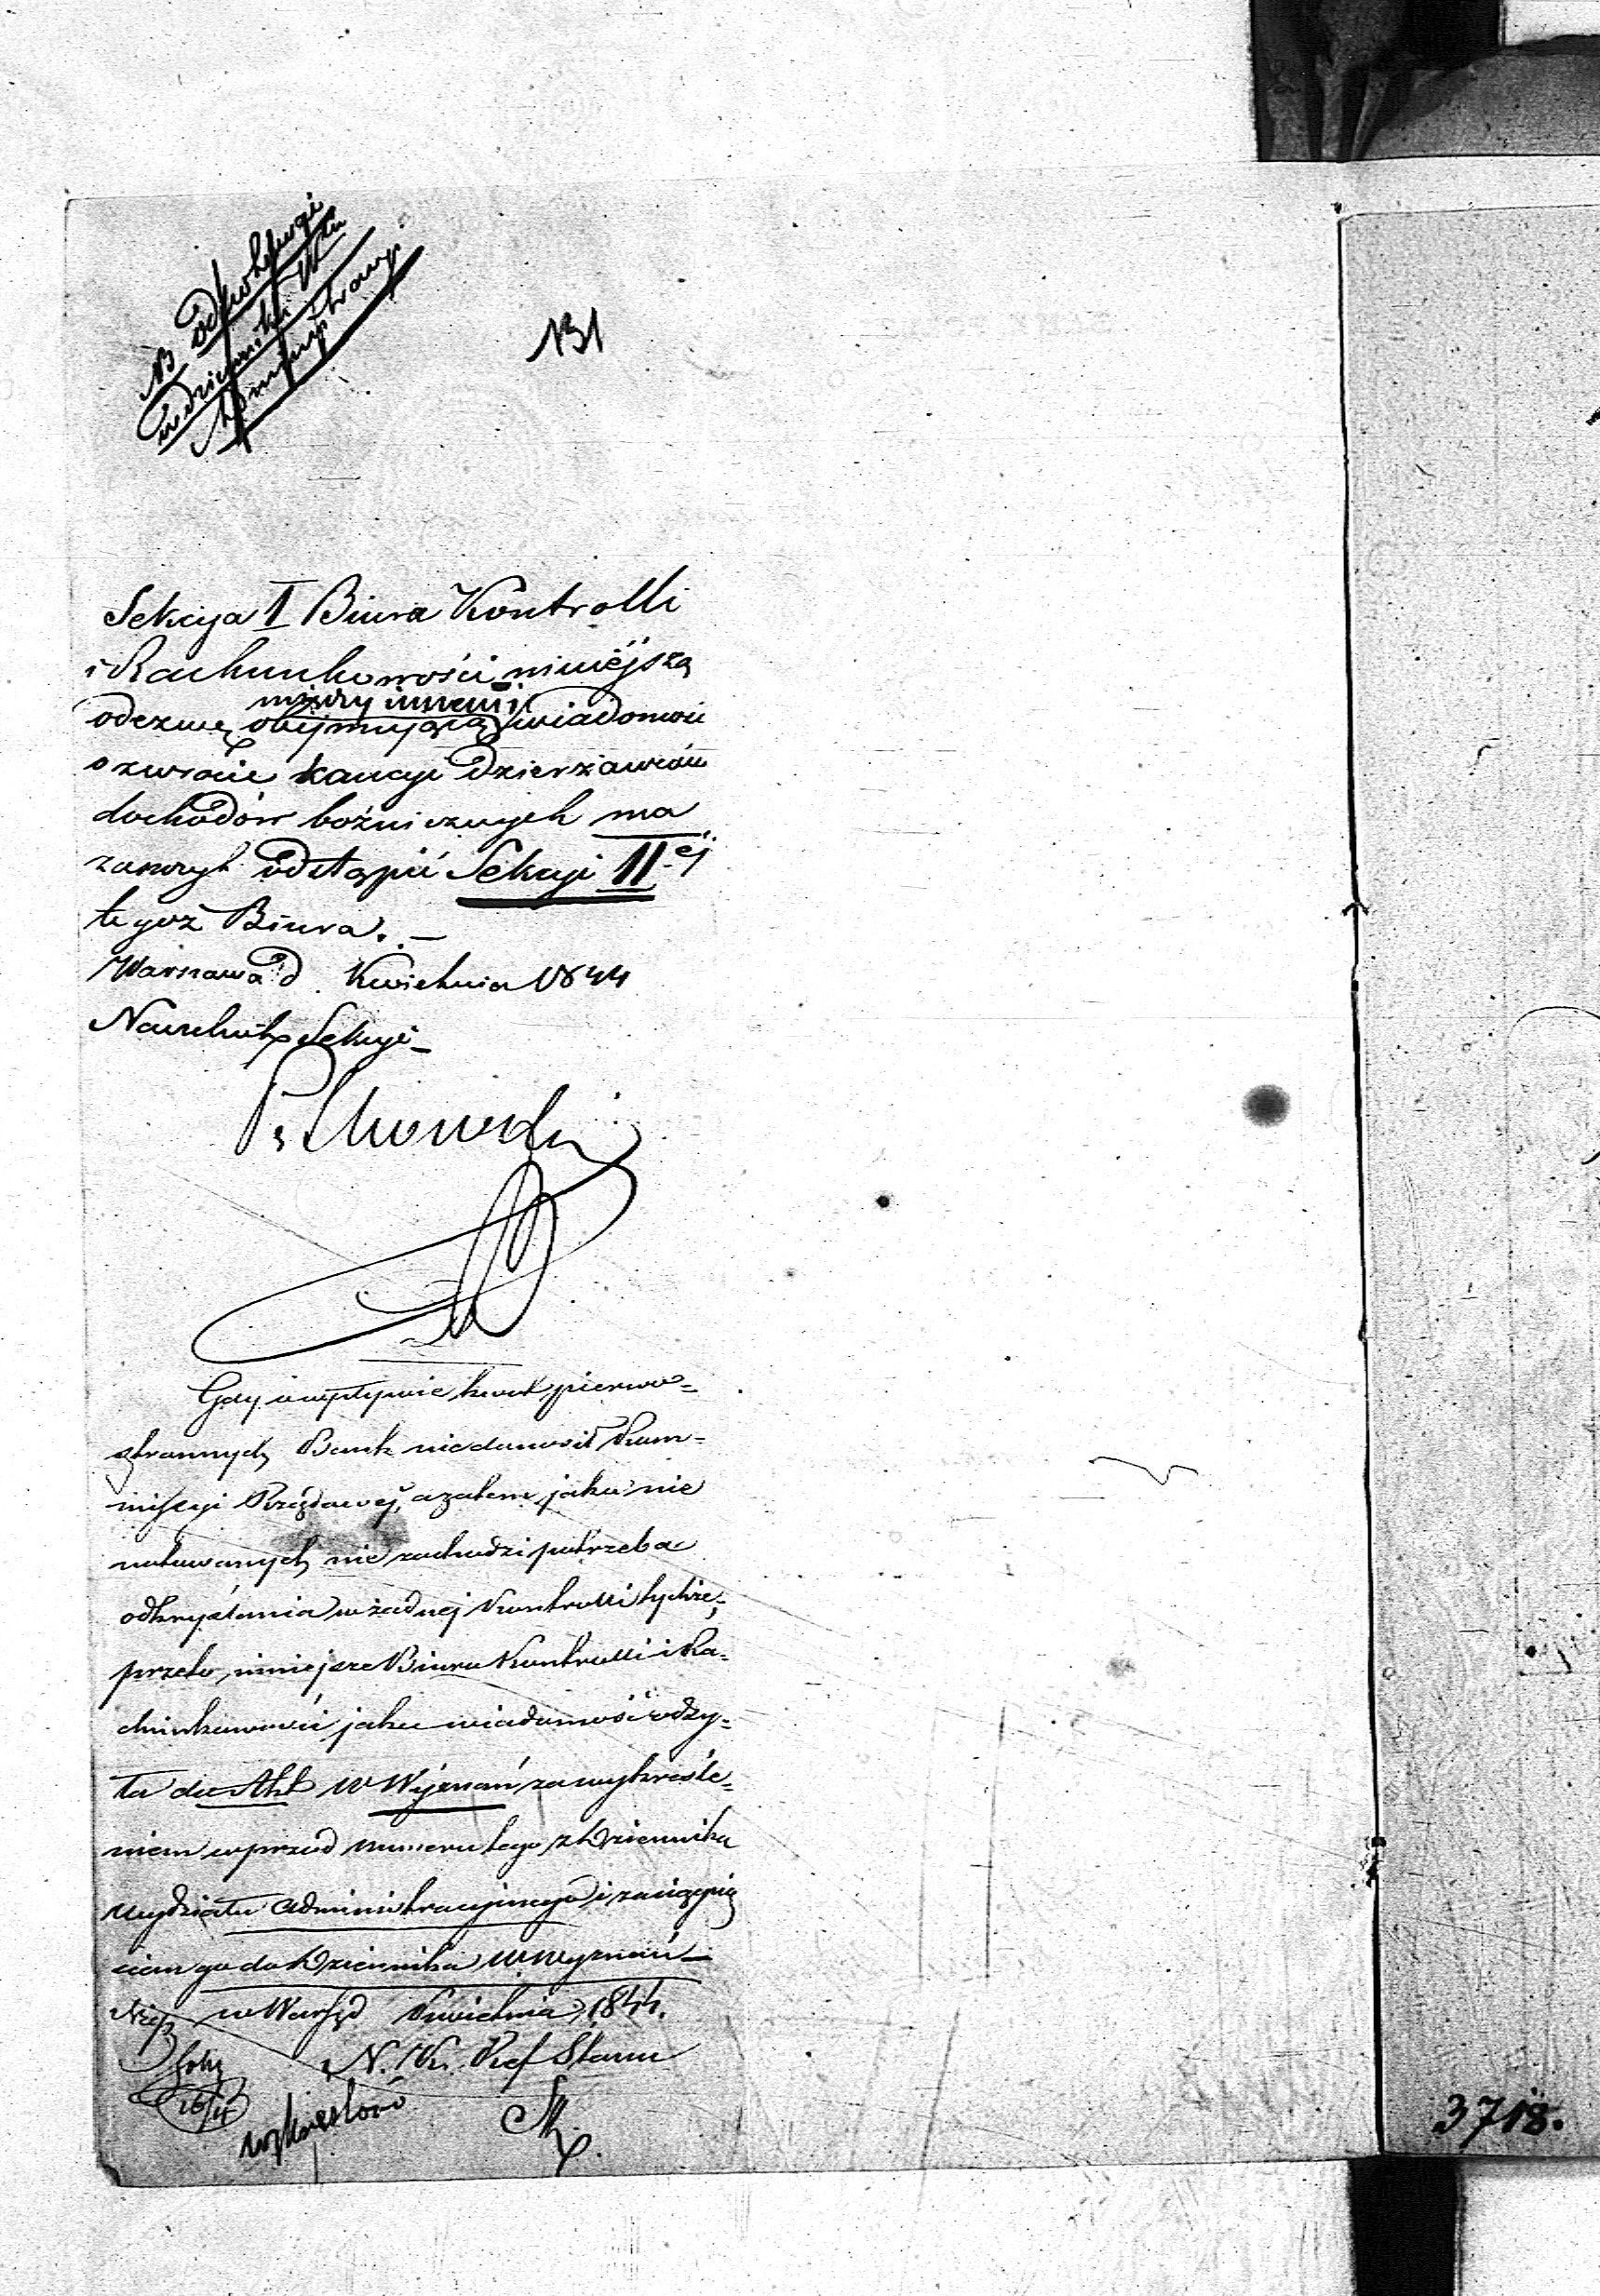 131
Sekcya I Biura Kontrolli
i Rachunkowości niniejszą
między innemi
odezwę obejmującą wiadomość
o zwrocie kaucyi dzierżawców
dochodów bożniczych ma
zaszczyt odstąpić Sekcyi II-ej
tegoż Biura. –
Warszawa d. Kwietnia 1844
Naczelnik Sekcyi –
Gdy o wpływie kwot pierwo=
stronnych Bank nie donosił Kom=
missyi Rządowej, a zatem jako nie
notowanych nie zachodzi potrzeba
odkryślania w żadnej Kontrolli tychże;
przeto, niniejsze Biuro Kontrolli i Ra=
chunkowości jako wiadomość odsy=
ła do Akt W Wyznań za wykreśle=
niem wprzód numeru tego z Dziennika
Wydziału Administracyjnego i zaciągnię
ciem go do Dziennika W Wyznań –
w Warsz d Kwietnia 1844.
N. Ref Stanu
16/4
wykreślono
3718.